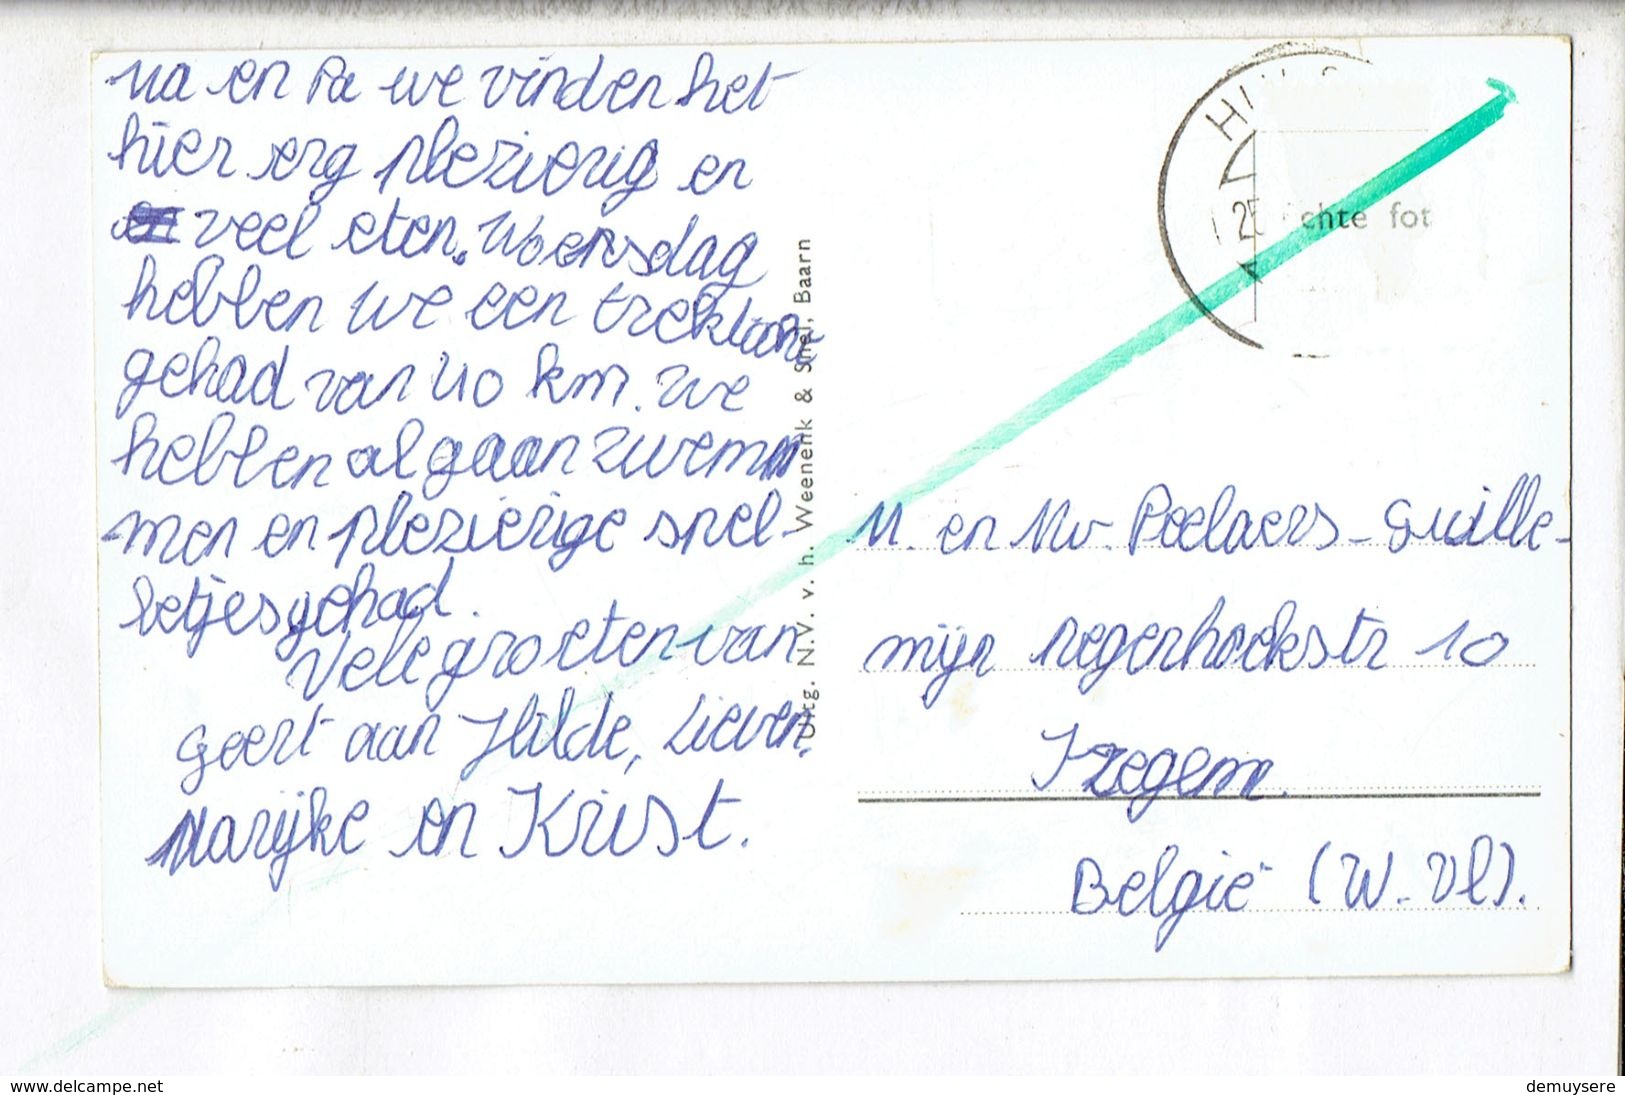 Ma en Pa we vinden het
hier erg plezierig en
veel eten. Woensdag
hebben we een trektocht
gehad van 40 km. we
hebben al gaan zwemm
men en plezierige spel-
letjes gehad.
Vele groeten van
Geert aan Hilde, Lieven,
Marijke en Krist.
Uitg. N.V. v. h. Weenenk & Snel, Baarn
25
chte fot
M. en Mv. Peelaers - Guille-
mijn negenhoekstr 10
Izegem.
België (W. Vl).
www.delcampe.net
demuysere